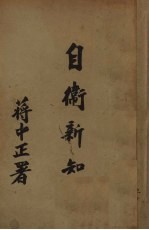 自衛新知
蔣中正署